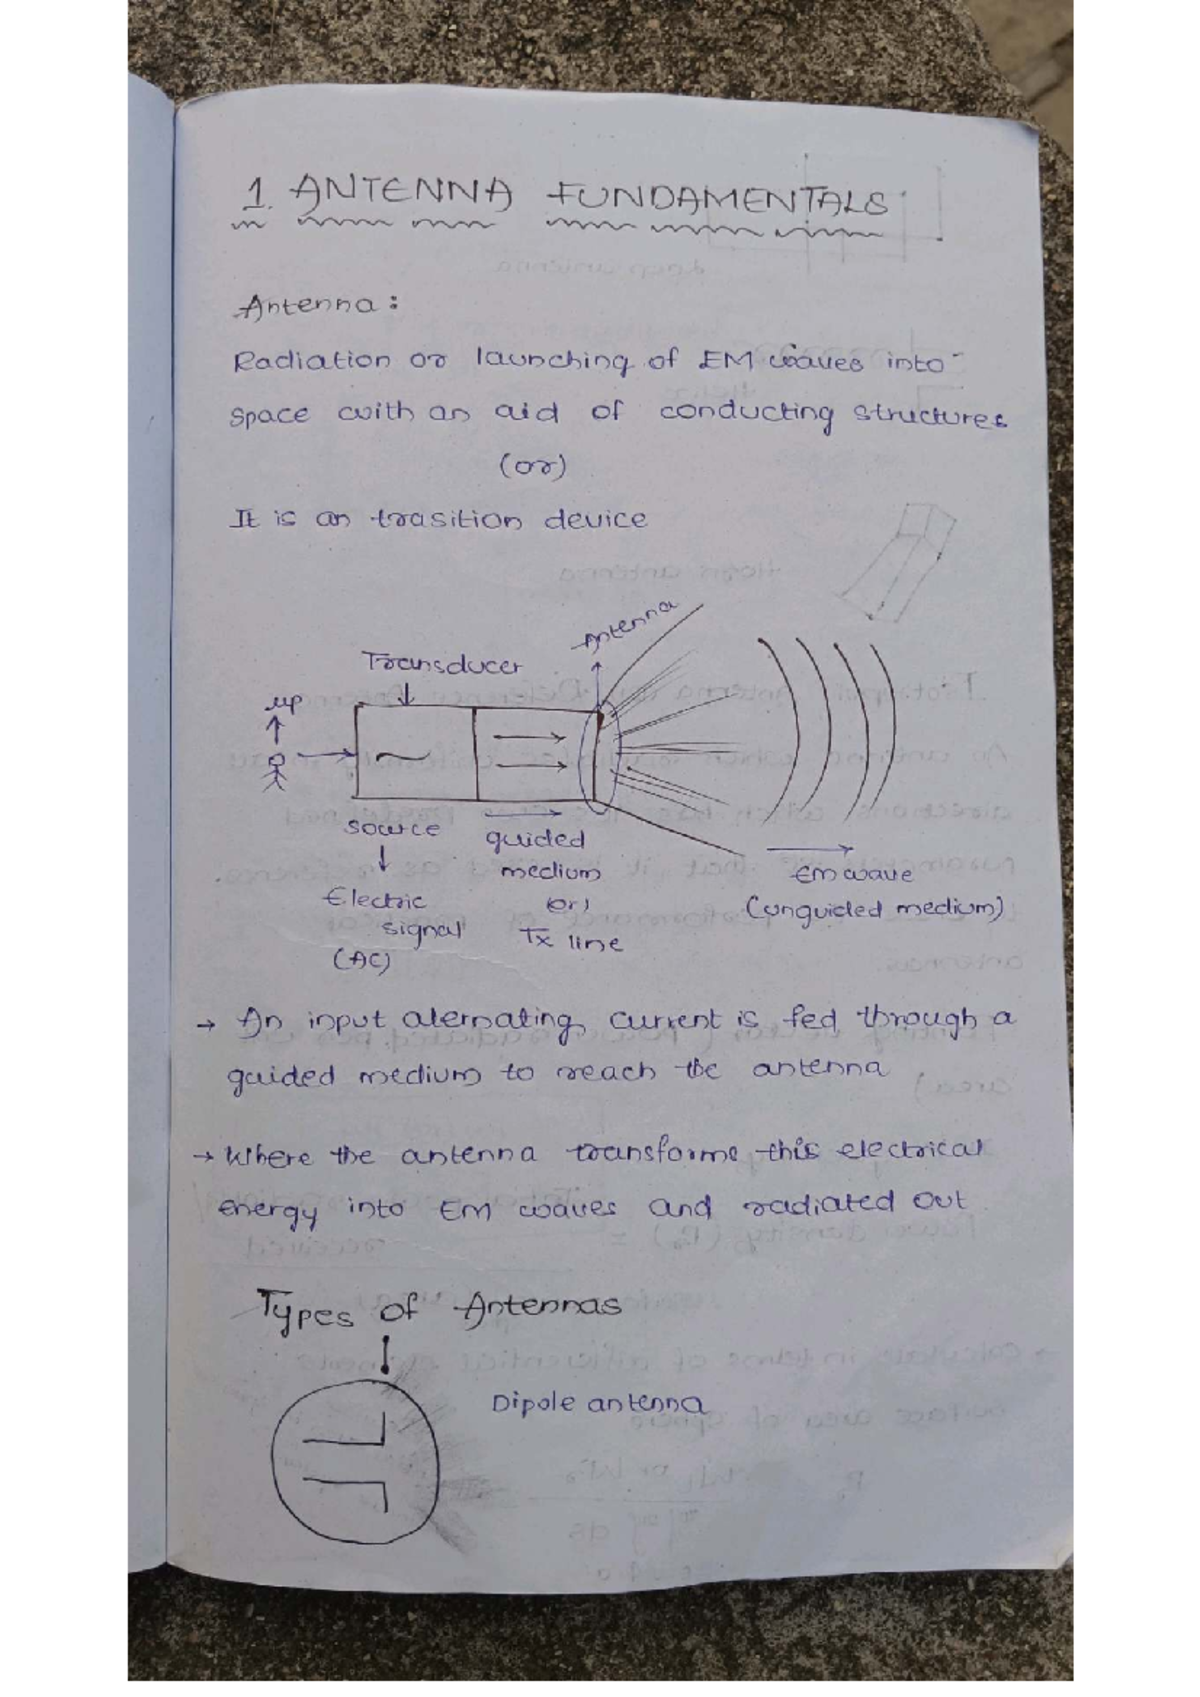 1. ANTENNA FUNDAMENTALS
Antenna:
Radiation or launching of EM waves into
space with an aid of conducting structures
(or)
It is an trasition device
Antenna
Transducer
source
Electric
signal
(AC)
guided
medium
(or)
Tx line
EM wave
(unguided medium)
→ An input alernating current is fed through a
guided medium to reach the antenna
→ Where the antenna transforms this electrical
energy into EM waves and radiated out
Types of Antennas
Dipole antenna